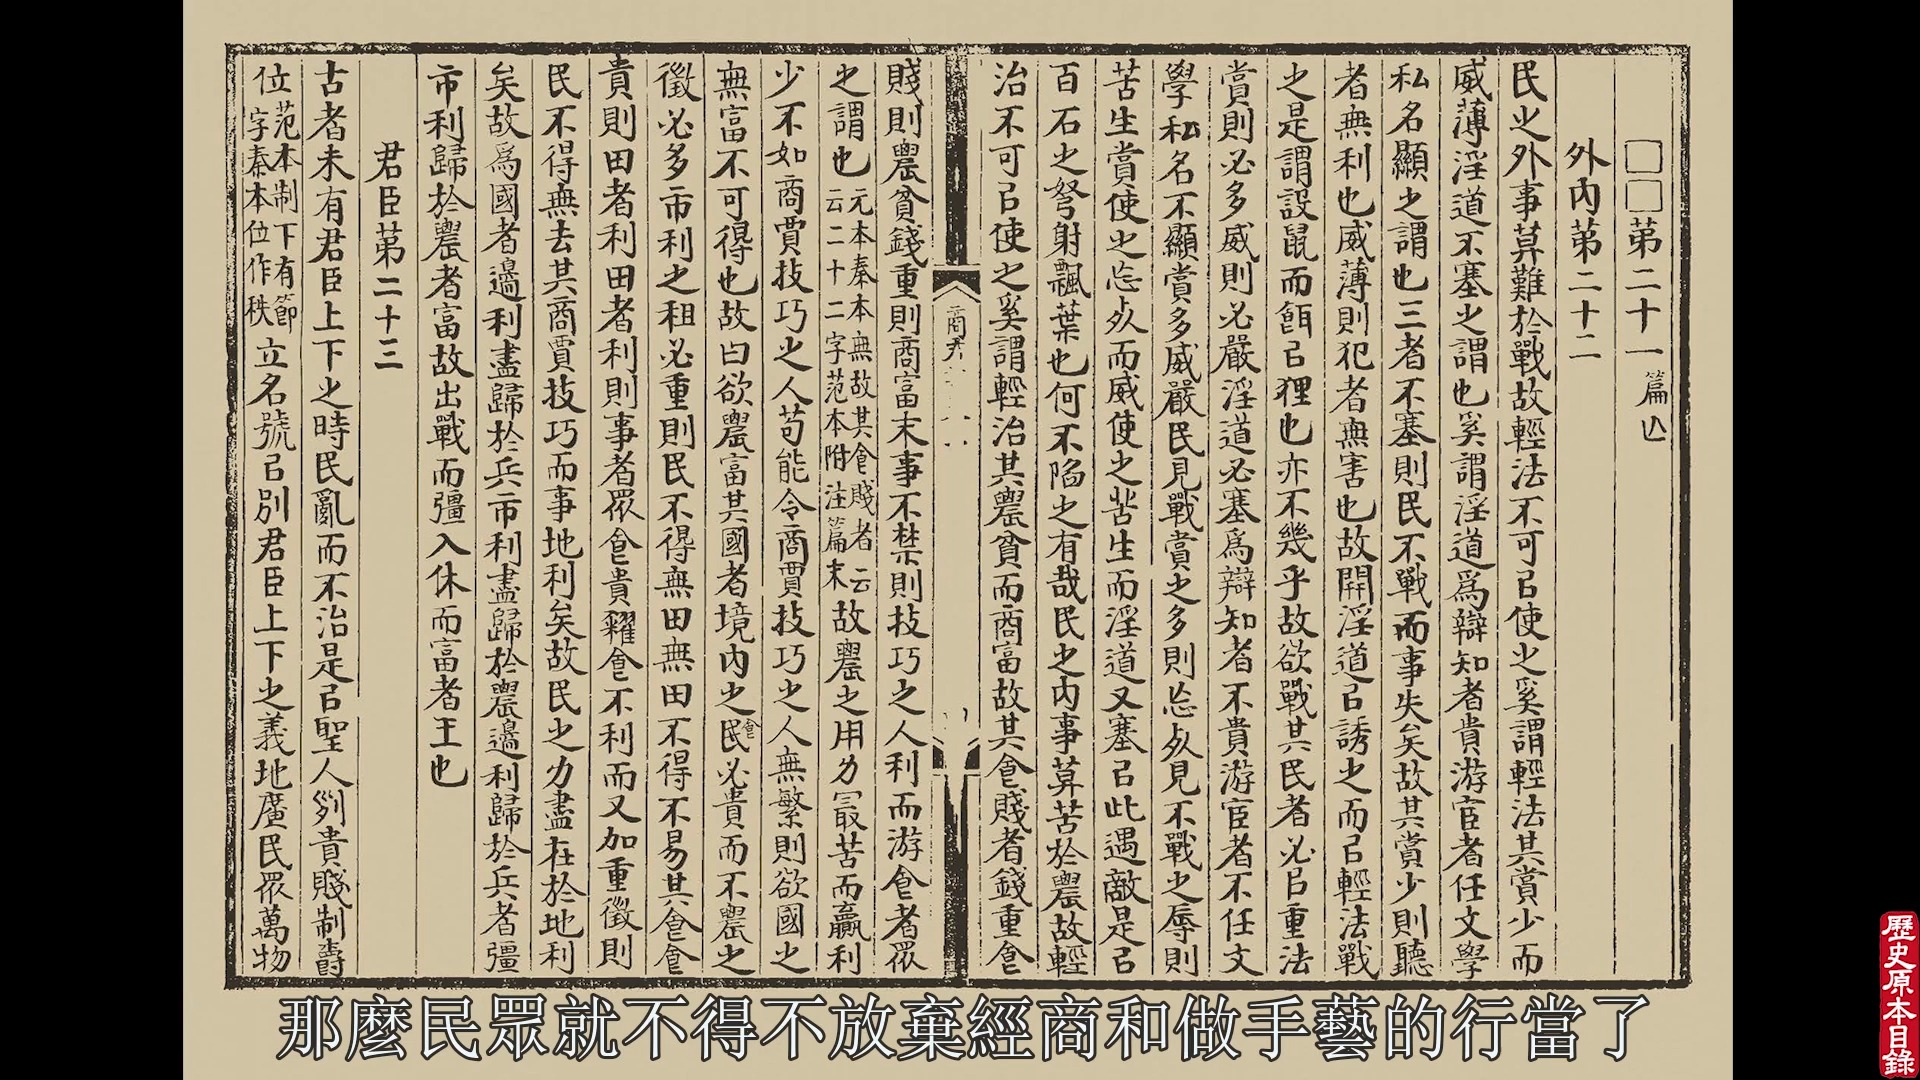 □□第二十一篇亾
外内第二十二
民之外事莫難於戰故輕法不可㠯使之奚謂輕法其賞少而
威薄淫道不塞之謂也奚謂淫道爲辯知者貴游宦者任文學
私名顯之謂也三者不塞則民不戰而事失矣故其賞少則聽
者無利也威薄則犯者無害也故開淫道㠯誘之而㠯輕法戰
之是謂設鼠而餌㠯狸也亦不幾乎故欲戰其民者必㠯重法
賞則必多威則必嚴淫道必塞爲辯知者不貴游宦者不任文
學私名不顯賞多威嚴民見戰賞之多則忘死見不戰之辱則
苦生賞使之忘死而威使之苦生而淫道又塞㠯此遇敵是㠯
百石之弩射飄葉也何不陷之有哉民之内事莫苦於農故輕
治不可㠯使之奚謂輕治其農貧而商富故其食賤者錢重食
商君
賤則農貧錢重則商富末事不禁則技巧之人利而游食者眾
之謂也元本秦本無故其食賤者云云二十二字范本附注篇末故農之用力最苦而贏利
少不如商賈技巧之人苟能令商賈技巧之人無繁則欲國之
無富不可得也故曰欲農富其國者境内之食民必貴而不農之
徵必多市利之租必重則民不得無田無田不得不易其食食
貴則田者利田者利則事者眾食貴糴食不利而又加重徵則
民不得無去其商賈技巧而事地利矣故民之力盡在於地利
矣故爲國者邊利盡歸於兵市利盡歸於農邊利歸於兵者彊
市利歸於農者富故出戰而彊入休而富者王也
君臣第二十三
古者未有君臣上下之時民亂而不治是㠯聖人列貴賤制爵
位范本制下有節字秦本位作秩立名號㠯別君臣上下之義地廣民眾萬物
那麼民眾就不得不放棄經商和做手藝的行當了
歷史原本目錄